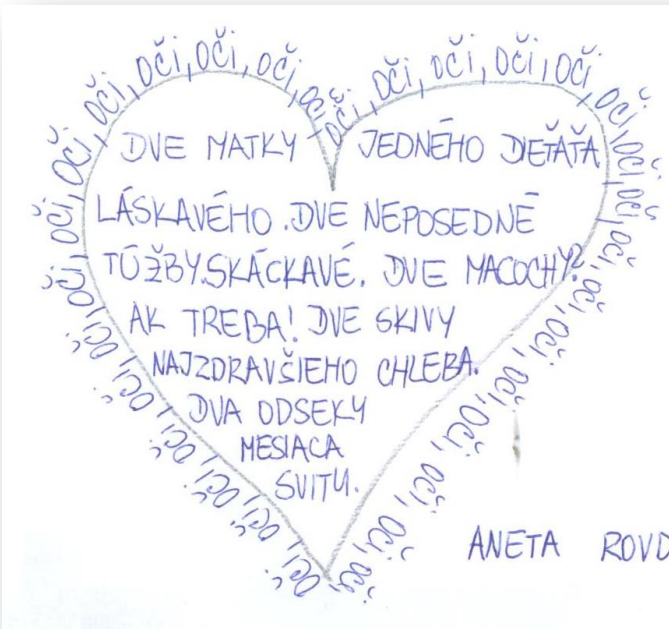 oči, oči, oči, oči, oči, oči, oči, oči, oči, oči, oči, oči, oči, oči, oči, oči, oči, oči, oči, oči, oči, oči, oči, oči, oči, oči, oči, oči, oči, oči
DVE MATKY JEDNÉHO DIEŤAŤA
LÁSKAVÉHO. DVE NEPOSEDNÉ
TÚŽBY.SKÁCKAVÉ. DVE MACOCHY?
AK TREBA! DVE SKIVY
NAJZDRAVŠIEHO CHLEBA.
DVA ODSEKY
MESIACA
SVITU.
ANETA ROVD